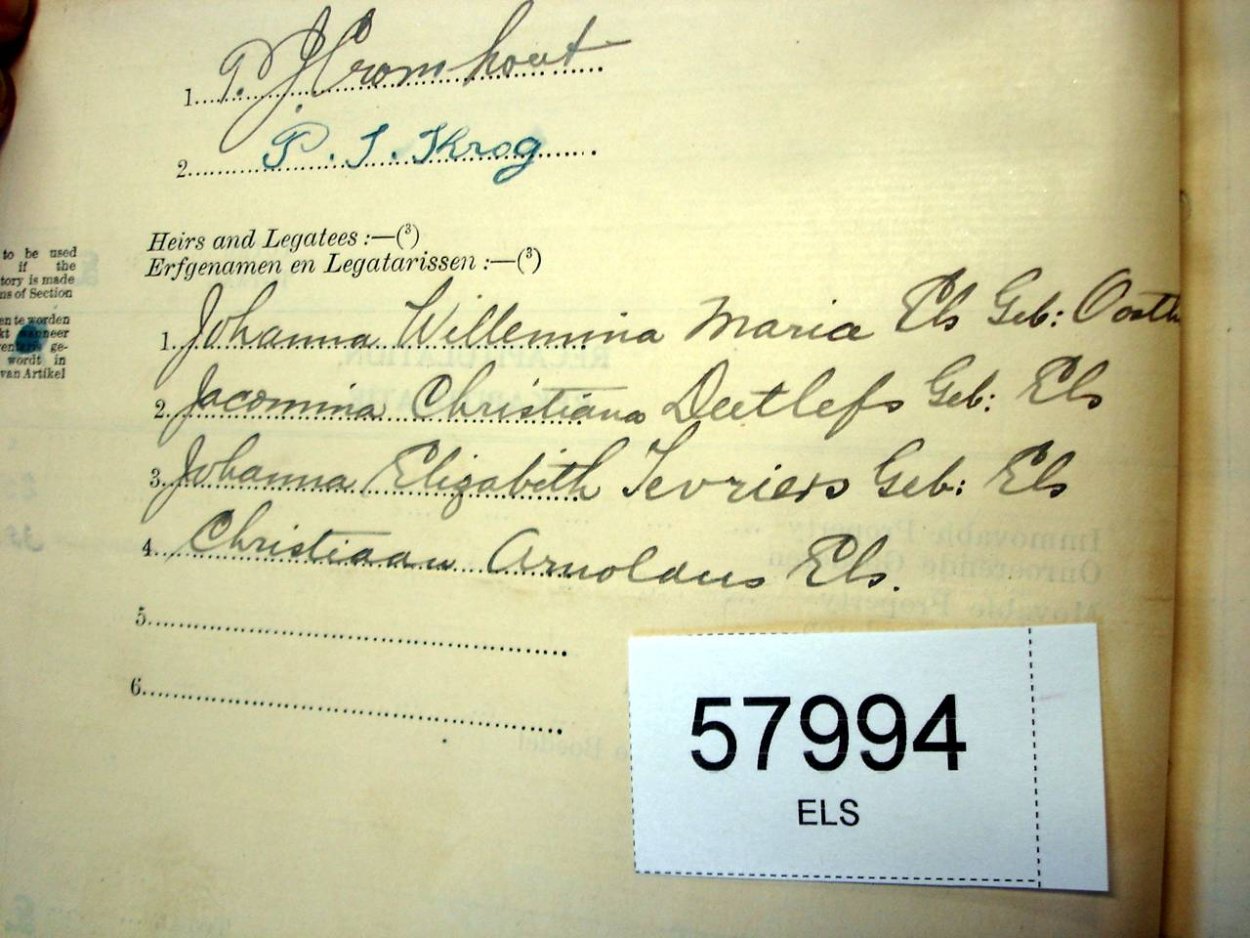 1. P. J. Cromhout
2. P. J. Krog
Heirs and Legatees :—(3)
Erfgenamen en Legatarissen :—(3)
to be used
if the
tory is made
ns of Section
en te worden
kt wanneer
ventaris ge-
wordt in
van Artikel
1. Johanna Willemina Maria Els Geb: Oosth
2. Jacomina Christiana Deetlefs Geb: Els
3. Johanna Elizabeth Geb: Els
4. Christiaan Arnoldus Els.
5.
6.
57994
ELS